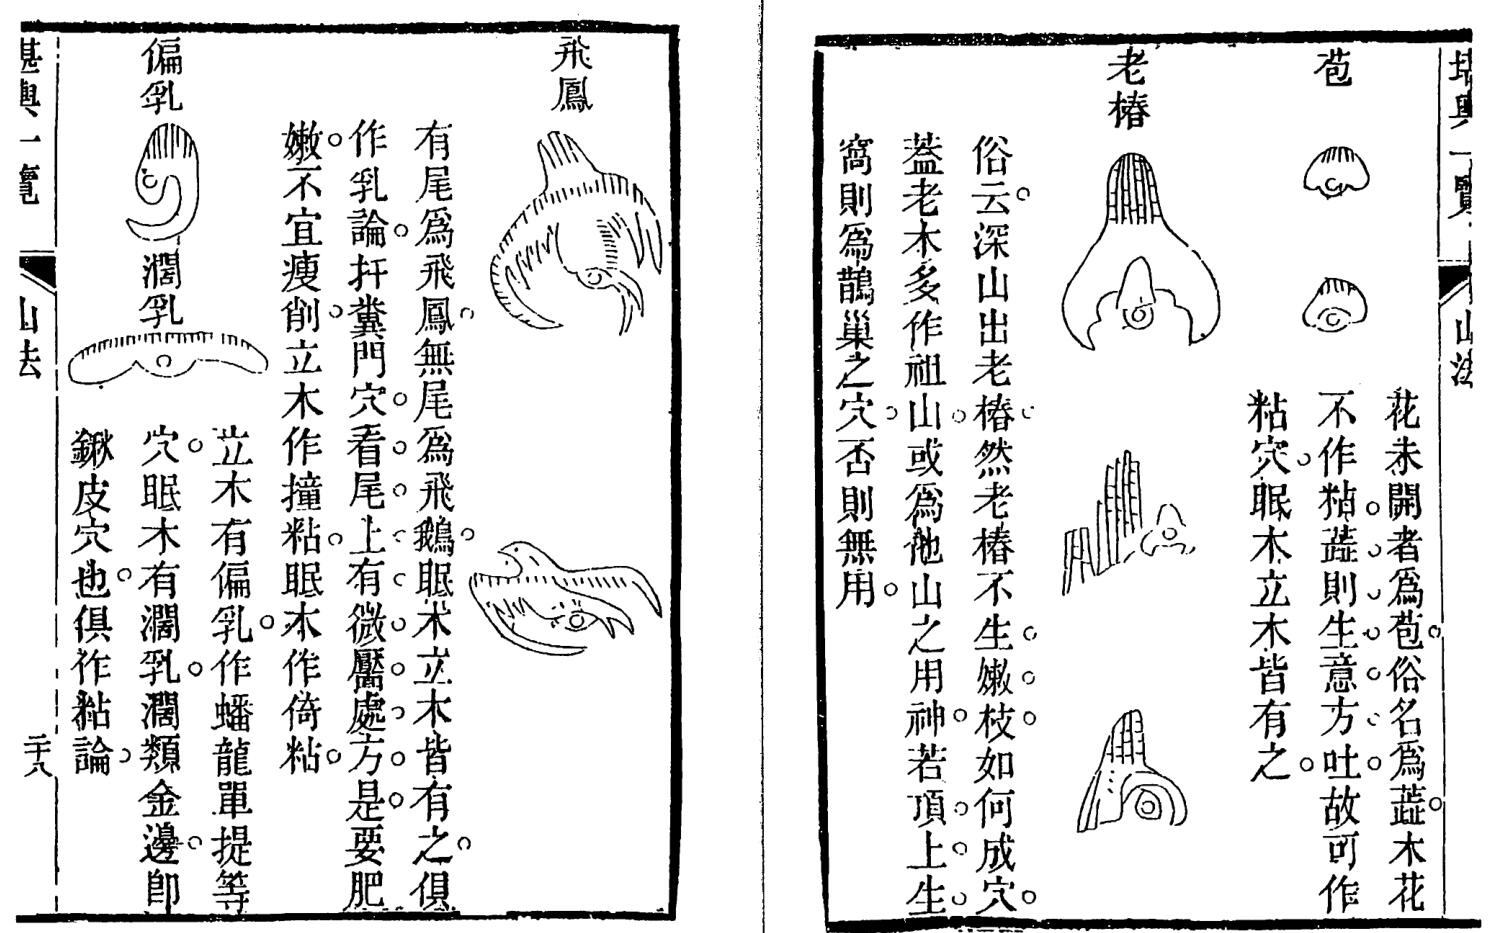 堪輿一覽 山法
苞
花未開者爲苞俗名爲蕋木花
不作粘蕋則生意方吐故可作
粘穴眠木立木皆有之
老椿
俗云深山出老椿然老椿不生嫩枝如何成穴
蓋老木多作祖山或爲他山之用神若頂上生
窩則爲鵲巢之穴否則無用
飛鳳
有尾爲飛鳳無尾爲飛鵝眠木立木皆有之俱
作乳論扦糞門穴看尾上有微靨處方是要肥
嫩不宜瘦削立木作撞粘眠木作倚粘
偏乳
濶乳
立木有偏乳作蟠龍單提等
穴眠木有濶乳濶類金邊卽
鍬皮穴也俱作粘論
堪輿一覽 山法 二十八